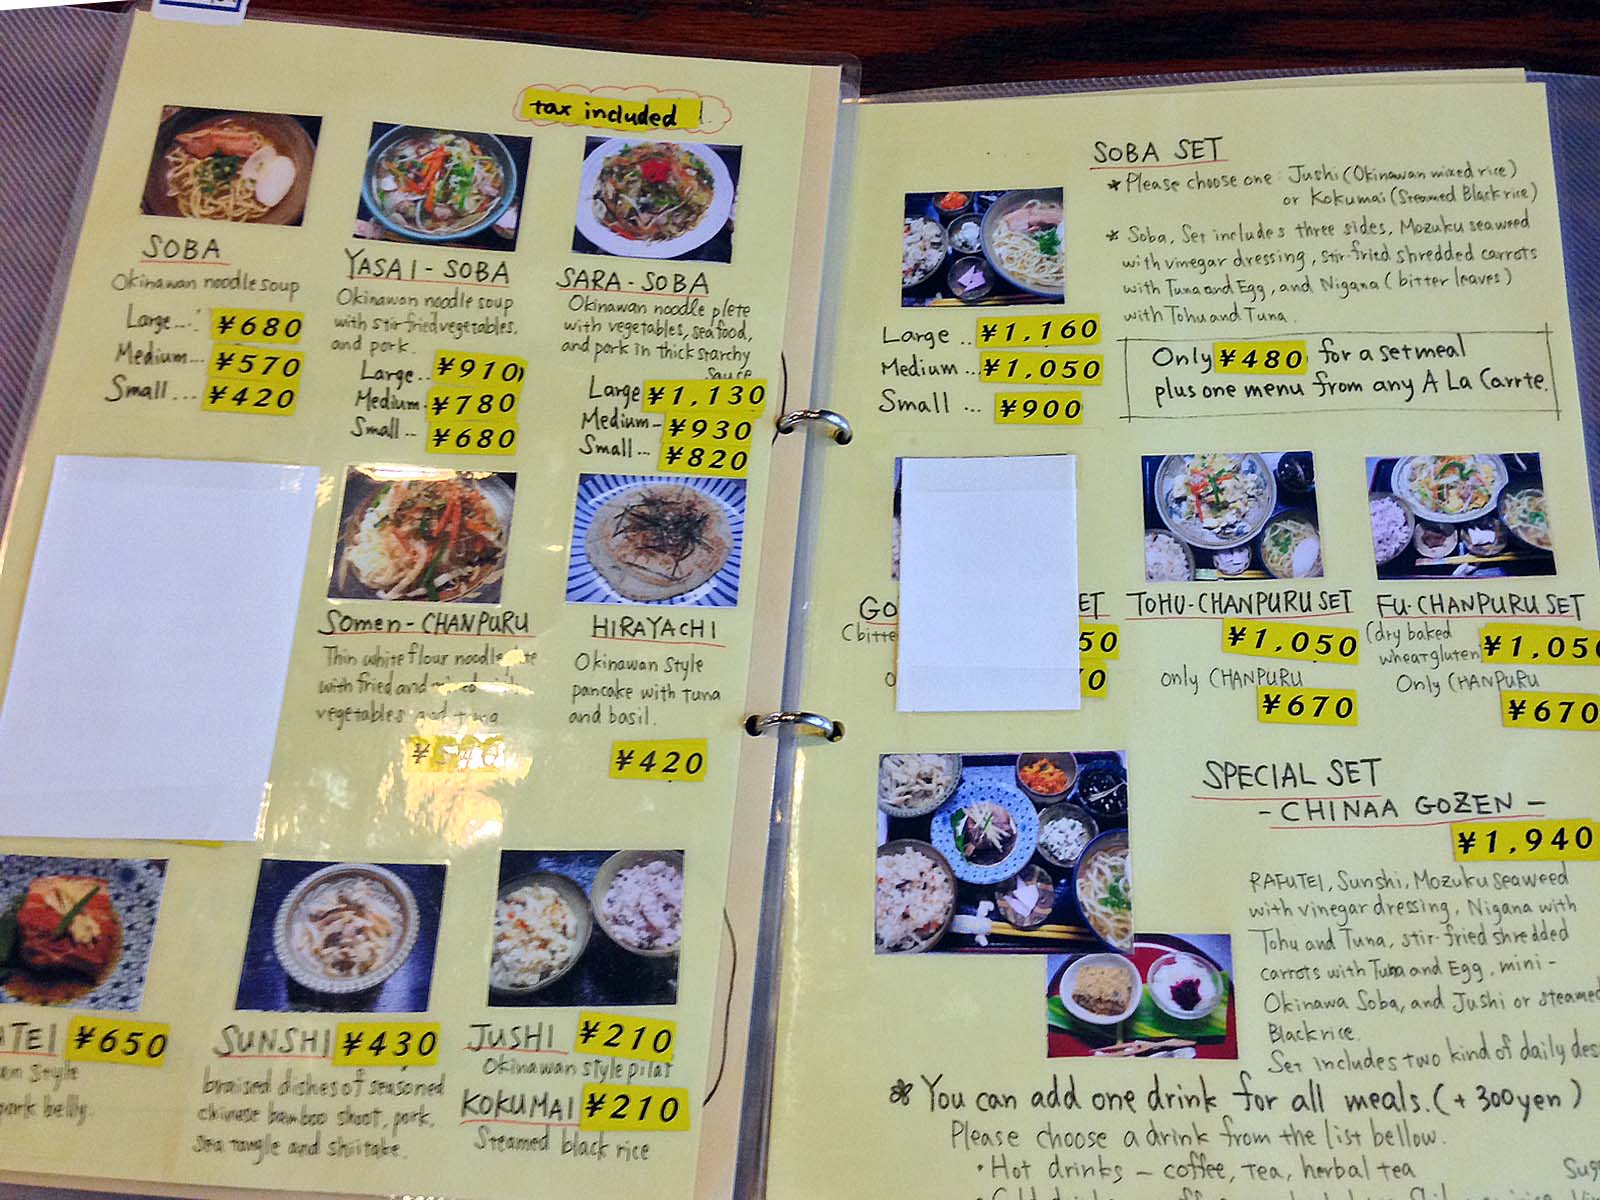 tax included
SOBA
Okinawan noodle soup
Large...: ¥680
Medium... ¥570
Small.... ¥420
YASAI-SOBA
Okinawan noodle soup
with stir fried vegetables,
and pork.
Large.. ¥910
Medium. ¥780
Small.. ¥680
SARA-SOBA
Okinawan noodle plete
with vegetables, seafood,
and pork in thick starchy
sauce
Large ¥1,130
Medium- ¥930
Small... ¥820
Somen-CHANPURU
Thin white flour noodle
with fried and
vegetables and tuna
HIRAYACHI
Okinawan style
pancake with tuna
and basil.
¥420
TEI ¥650
style
pork belly.
SUNSHI ¥430
braised dishes of seasoned
chinese bamboo shoot, pork,
sea tangle and shiitake.
JUSHI ¥210
Okinawan style pilaf
KOKUMAI ¥210
Steamed black rice
SOBA SET
* Please choose one: Jushi (Okinawan mixed rice)
or Kokumai (Steamed Black rice)
* Soba, Set includes three sides, Mozuku seaweed
with vinegar dressing, stir-fried shredded carrots
with Tuna and Egg, and Nigana (bitter leaves)
with Tohu and Tuna.
Large .. ¥1,160
Medium ... ¥1,050
Small ... ¥900
Only ¥480 for a setmeal
plus one menu from any A La Carrte.
GO ET
(bitte 50
o 70
TOHU-CHANPURU SET
¥1,050
only CHANPURU
¥670
FU-CHANPURU SET
(dry baked
wheatgluten ¥1,050
Only CHANPURU
¥670
SPECIAL SET
- CHINAA GOZEN -
¥1,940
RAFUTEI, Sunshi, Mozuku seaweed
with vinegar dressing, Nigana with
Tohu and Tuna, stir-fried shredded
carrots with Tuna and Egg, mini-
Okinawa Soba, and Jushi or steamed
Black rice.
Set includes two kind of daily des
* You can add one drink for all meals. (+300yen)
Please choose a drink from the list bellow.
・Hot drinks - coffee, tea, herbal tea